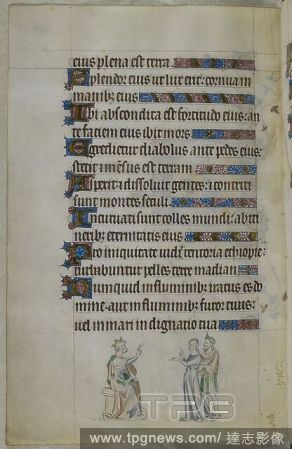 eius plena est terra.
Splendor eius ut lux erit: cornua in
manibz eius
Ibi abscondita est fortitudo eius: an
te faciem eius ibit mors
Egredietur diabolus ante pedes eius:
stetit ⁊ mēsus est terram
Aspexit ⁊ dissoluit gentes: ⁊ contriti
sunt montes seculi.
Incuruati sunt colles mundi: ab iti
neribz eternitatis eius
Pro iniquitate uidi tentoria ethiopie:
turbabuntur pelles terre madian
Numquid in fluminibz iratus es do
mine: aut in fluminibz furor tuus:
uel in mari indignatio tua
TPG
www.tpgnews.com / 達志影像